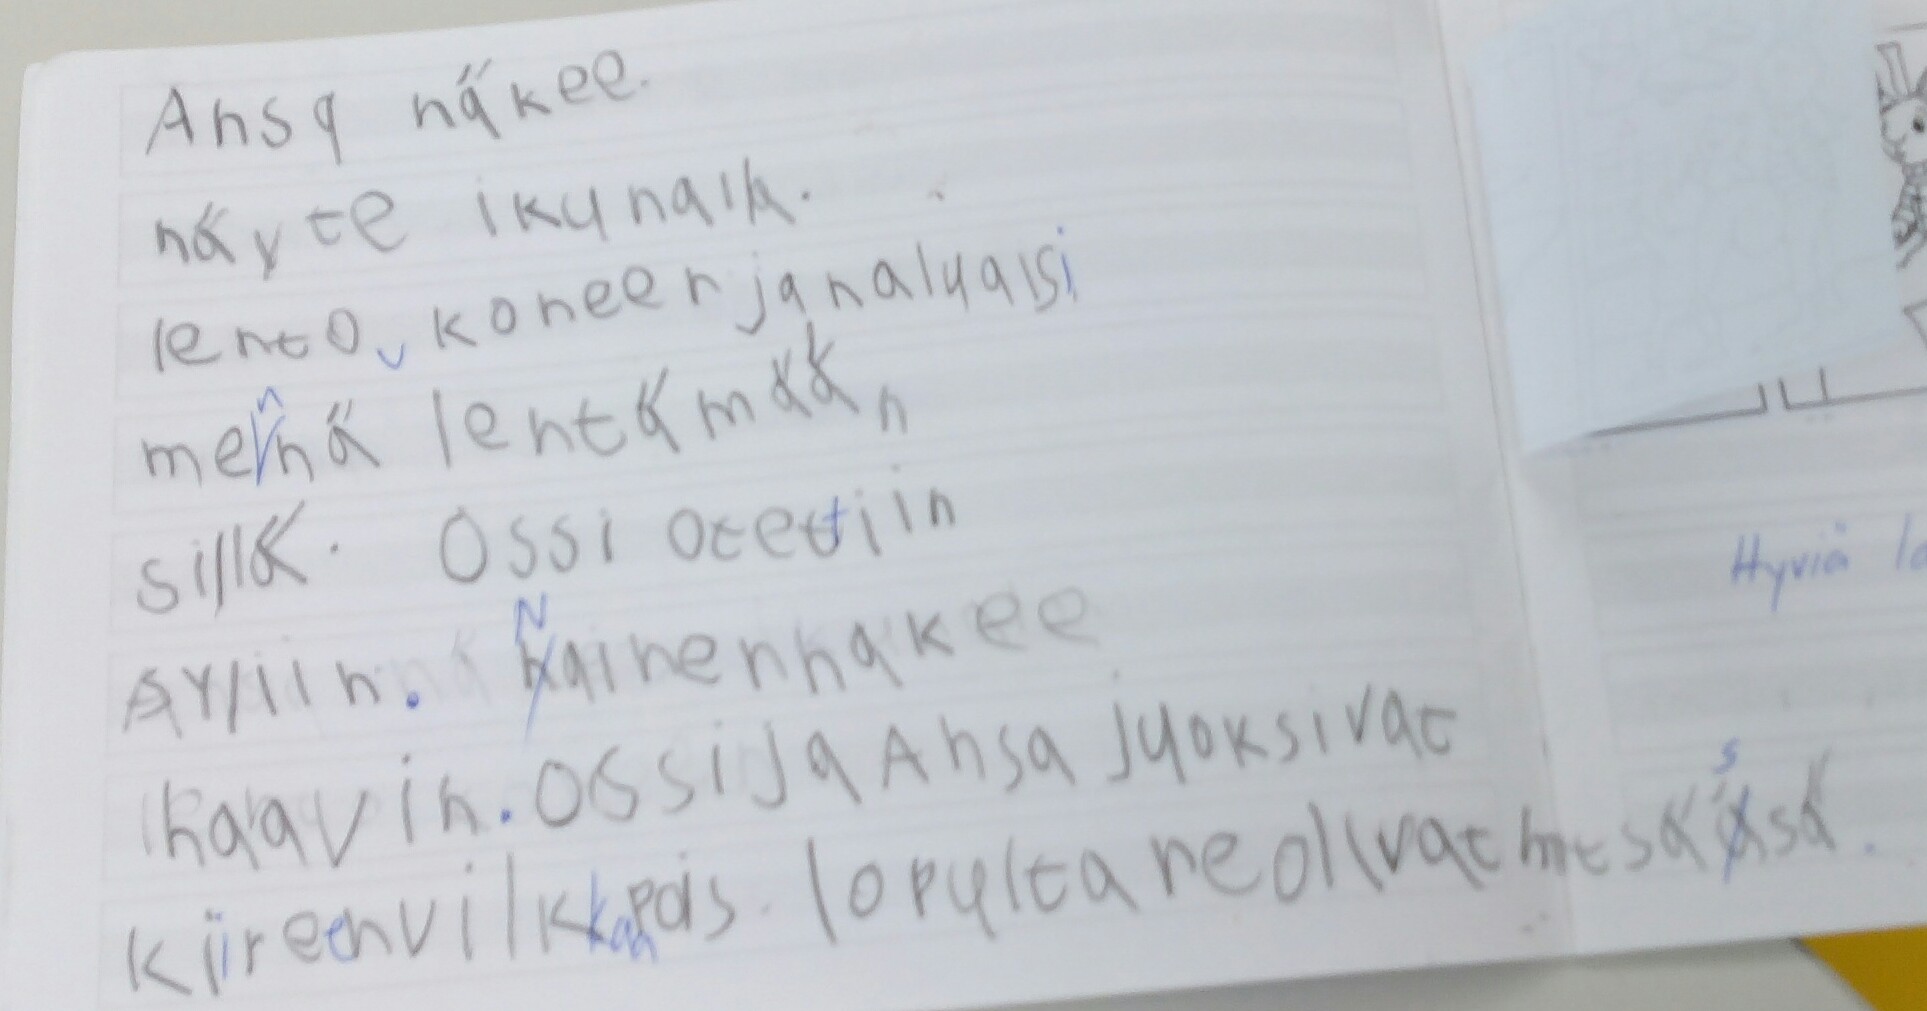 Ansa näkee.
näyte ikunala.
lento koneen ja naluaisi
mennä lentämään
sillä. Ossi otettiin
syliin. Nainen näkee
haavin. Ossi ja Ansa juoksivat
kiireen vilkkaan pois. lopulta ne olivat metsässä.
Hyviä